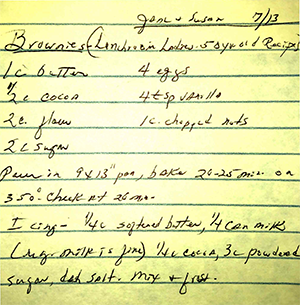 Jane & Susan 7/13
Brownies - (Luncheon Ladies 50 year old Recipe)
1 c butter 4 eggs
1/2 c cocoa 4 tsp vanilla
2 c. flour 1 c. chopped nuts
2 c sugar
Pour in 9x13" pan, bake 20-25 min. on
350°. Check at 20 min.
Icing - 1/4 c softened butter, 1/4 can milk
(reg. milk is fine) 1/4 c cocoa, 3 c powdered
sugar, dash salt. Mix & frost.